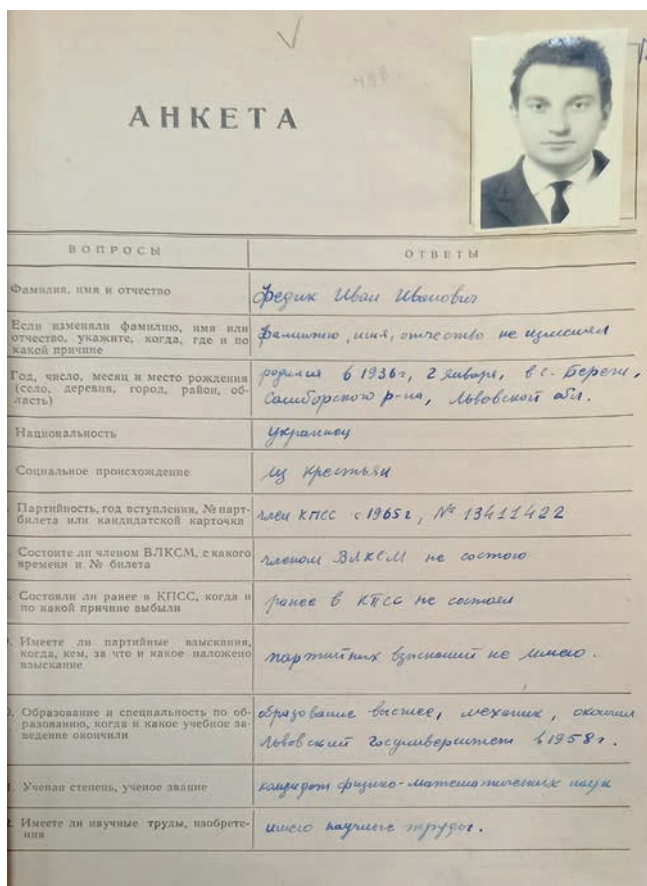 АНКЕТА
ВОПРОСЫ
ОТВЕТЫ
Фамилия, имя и отчество
Федик Иван Иванович
Если изменяли фамилию, имя или
отчество, укажите, когда, где и по
какой причине
фамилию, имя, отчество не изменял
Год, число, месяц и место рождения
(село, деревня, город, район, об-
ласть)
родился в 1936г, 2 января, в с. Береги,
Самборского р-на, Львовской обл.
Национальность
украинец
Социальное происхождение
из крестьян
Партийность, год вступления, № парт-
билета или кандидатской карточки
член КПСС с 1965г, № 13411422
Состоите ли членом ВЛКСМ, с какого
времени и № билета
членом ВЛКСМ не состою
Состояли ли ранее в КПСС, когда и
по какой причине выбыли
ранее в КПСС не состоял
Имеете ли партийные взыскания,
когда, кем, за что и какое наложено
взыскание
партийных взысканий не имею.
0. Образование и специальность по об-
разованию, когда и какое учебное за-
ведение окончили
образование высшее, механик, окончил
Львовский Госуниверситет в 1958г.
1. Ученая степень, ученое звание
кандидат физико-математических наук
2. Имеете ли научные труды, изобрете-
ния
имею научные труды.